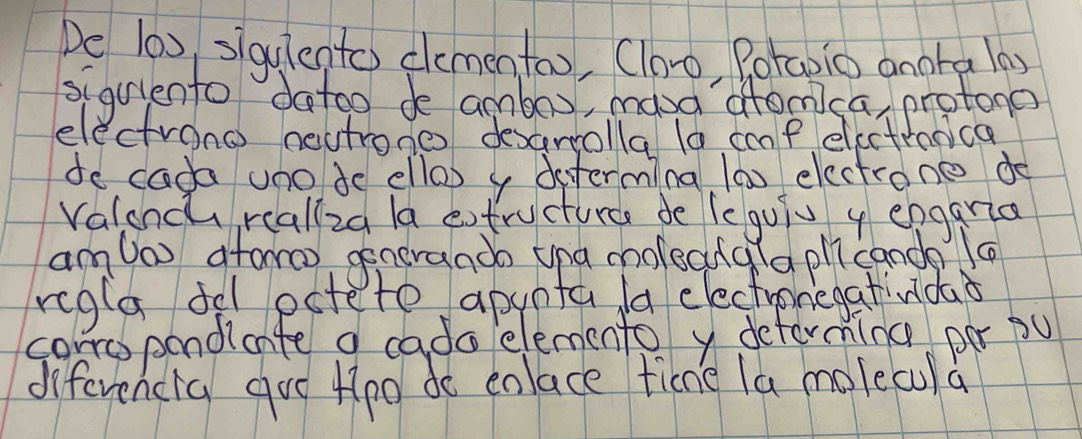 De los siguientes elementos, Cloro, Potasio anota los
siguiente datos de ambos, masa atomica, protono
electrono neutrones desarrolla la conf electronica
de cada uno de ellos y determina los electrones de
valencia, realiza la estructura de leguis y engarza
ambos atomos generando una molecula aplicando la
regla del octeto apunta la electronegatividad
correspondiente a cada elemento y determina por su
diferencia que tipo de enlace tiene la molecula